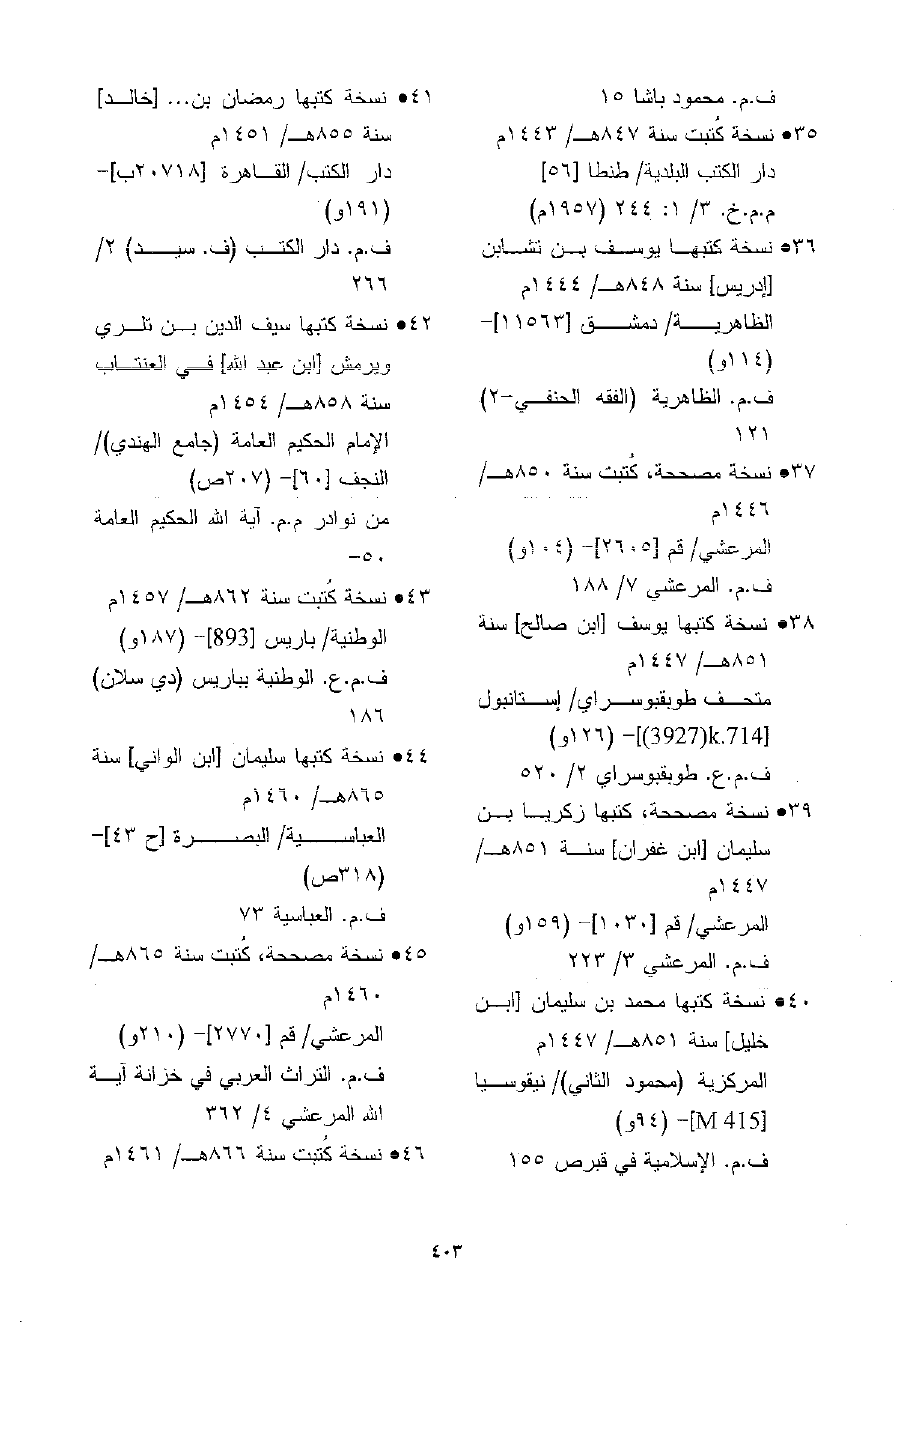 ف.م. محمود باشا ١٥
٣٥• نسخة كُتبت سنة ٨٤٧هـ/ ١٤٤٣م
دار الكتب البلدية/ طنطا [٥٦]
م.م.خ. ٣/ ١: ٢٤٤ (١٩٥٧م)
٣٦• نسخة كتبها يوسف بن تشابن
[إدريس] سنة ٨٤٨هـ/ ١٤٤٤م
الظاهرية/ دمشق [١١٥٦٣]-
(١١٤و)
ف.م. الظاهرية (الفقه الحنفي-٢)
١٢١
٣٧• نسخة مصححة، كُتبت سنة ٨٥٠هـ/
١٤٤٦م
المرعشي/ قم [٢٦٠٥]- (١٠٤و)
ف.م. المرعشي ٧/ ١٨٨
٣٨• نسخة كتبها يوسف [ابن صالح] سنة
٨٥١هـ/ ١٤٤٧م
متحف طوبقبوسراي/ إستانبول
[(3927)k.714]- (١٢٦و)
ف.م.ع. طوبقبوسراي ٢/ ٥٢٠
٣٩• نسخة مصححة، كتبها زكريا بن
سليمان [ابن غفران] سنة ٨٥١هـ/
١٤٤٧م
المرعشي/ قم [١٠٣٠]- (١٥٩و)
ف.م. المرعشي ٣/ ٢٢٣
٤٠• نسخة كتبها محمد بن سليمان [ابن
خليل] سنة ٨٥١هـ/ ١٤٤٧م
المركزية (محمود الثاني)/ نيقوسيا
[M 415]- (٩٤و)
ف.م. الإسلامية في قبرص ١٥٥
٤١• نسخة كتبها رمضان بن... [خالد]
سنة ٨٥٥هـ/ ١٤٥١م
دار الكتب/ القاهرة [٢٠٧١٨ب]-
(١٩١و)
ف.م. دار الكتب (ف. سيد) ٢/
٢٦٦
٤٢• نسخة كتبها سيف الدين بن تلري
ويرمش [ابن عبد الله] في العنتاب
سنة ٨٥٨هـ/ ١٤٥٤م
الإمام الحكيم العامة (جامع الهندي)/
النجف [٦٠]- (٢٠٧ص)
من نوادر م.م. آية الله الحكيم العامة
٥٠-
٤٣• نسخة كُتبت سنة ٨٦٢هـ/ ١٤٥٧م
الوطنية/ باريس [893]- (١٨٧و)
ف.م.ع. الوطنية بباريس (دي سلان)
١٨٦
٤٤• نسخة كتبها سليمان [ابن الواني] سنة
٨٦٥هـ/ ١٤٦٠م
العباسية/ البصرة [ح ٤٣]-
(٣١٨ص)
ف.م. العباسية ٧٣
٤٥• نسخة مصححة، كُتبت سنة ٨٦٥هـ/
١٤٦٠م
المرعشي/ قم [٢٧٧٠]- (٢١٠و)
ف.م. التراث العربي في خزانة آية
الله المرعشي ٤/ ٣٦٢
٤٦• نسخة كُتبت سنة ٨٦٦هـ/ ١٤٦١م
٤٠٣